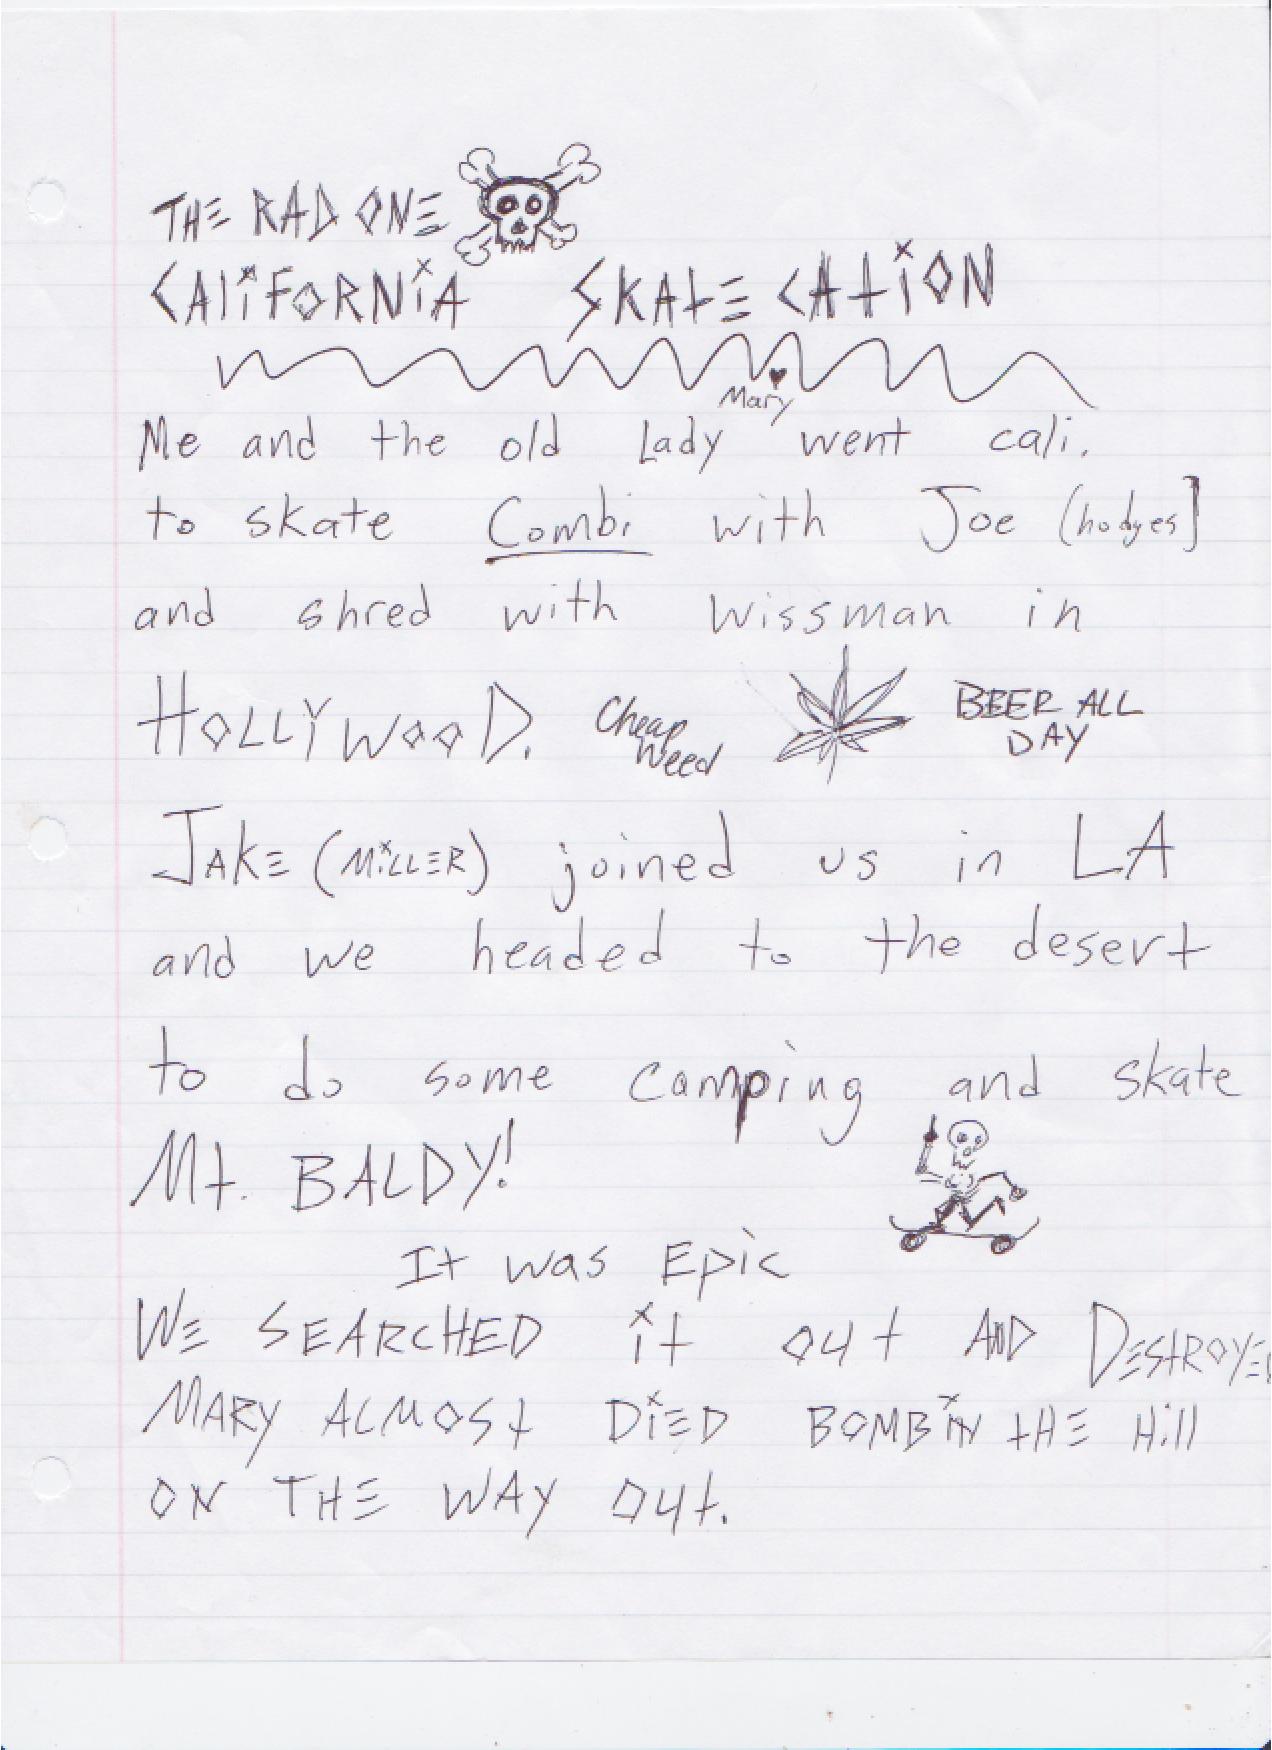 THE RAD ONE
CALiFORNiA SKATE CATiON
Mary
Me and the old Lady went cali.
to skate Combi with Joe (hodges]
and shred with Wissman in
HOLLYWOOD. Cheap Weed BEER ALL DAY
JAKE (MiLLER) joined us in LA
and we headed to the desert
to do some camping and skate
Mt. BALDY!
It was Epic
WE SEARCHED it OUt AND DESTROYED
MARY ALMOSt DiED BOMBiN tHE Hill
ON THE WAY OUt.